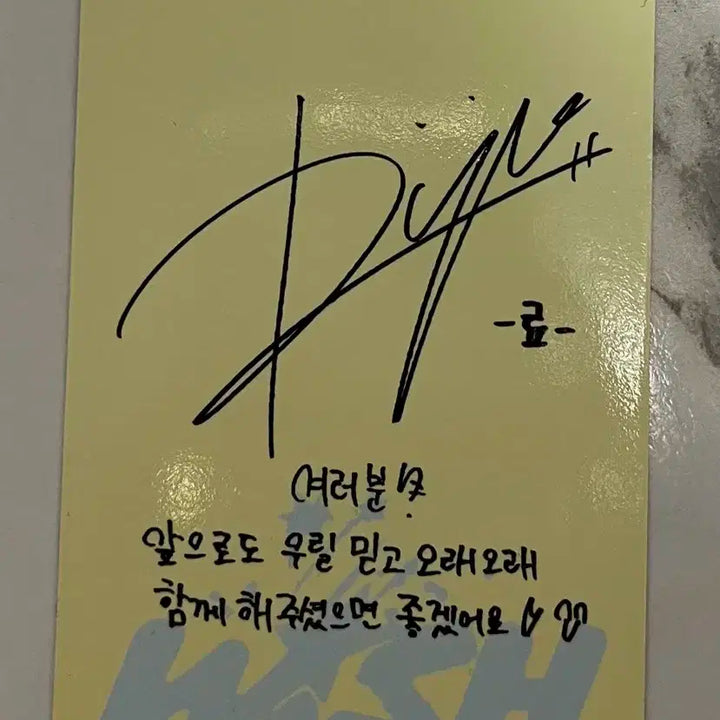 Riyu
-료-
여러분!
앞으로도 우릴 믿고 오래오래
함께 해주셨으면 좋겠어요
WISH